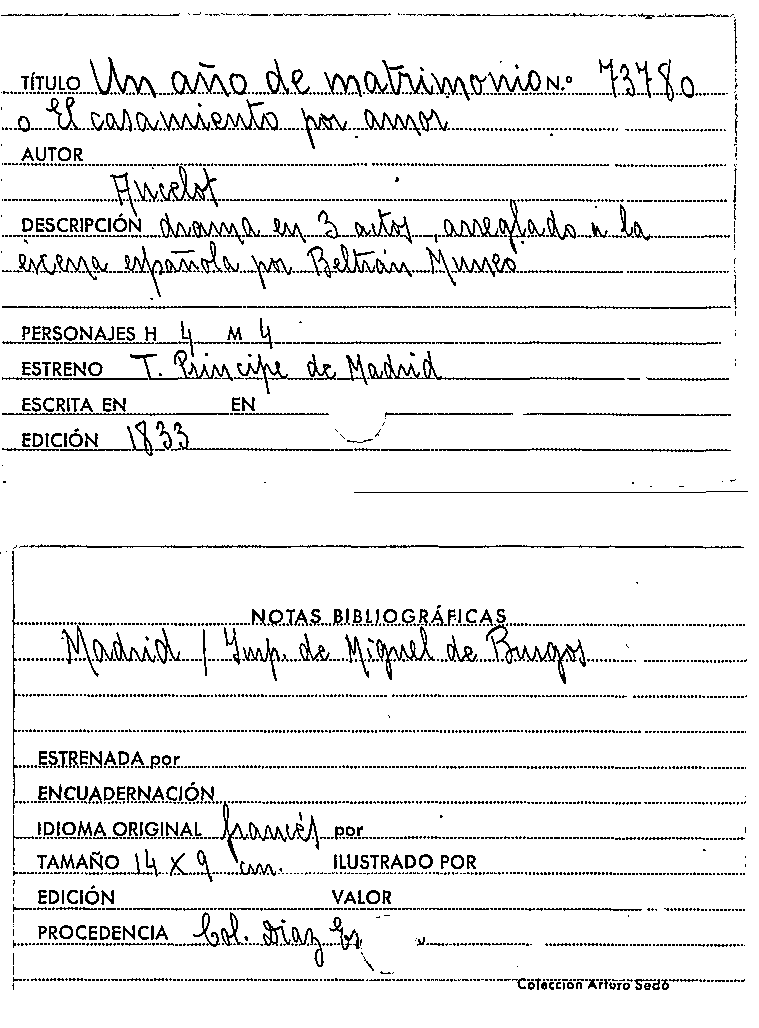 TÍTULO Un año de matrimonio N.º 73780
o El casamiento por amor
AUTOR
Ancelot
DESCRIPCIÓN drama en 3 actos, arreglado a la
escena española por Beltrán Muneo
PERSONAJES H 4 M 4
ESTRENO T. Principe de Madrid
ESCRITA EN EN
EDICIÓN 1833
NOTAS BIBLIOGRÁFICAS
Madrid / Imp. de Miguel de Burgos
ESTRENADA por
ENCUADERNACIÓN
IDIOMA ORIGINAL francés por
TAMAÑO 14 X 9 cm. ILUSTRADO POR
EDICIÓN VALOR
PROCEDENCIA Col. Diaz Es
Colección Arturo Sedó